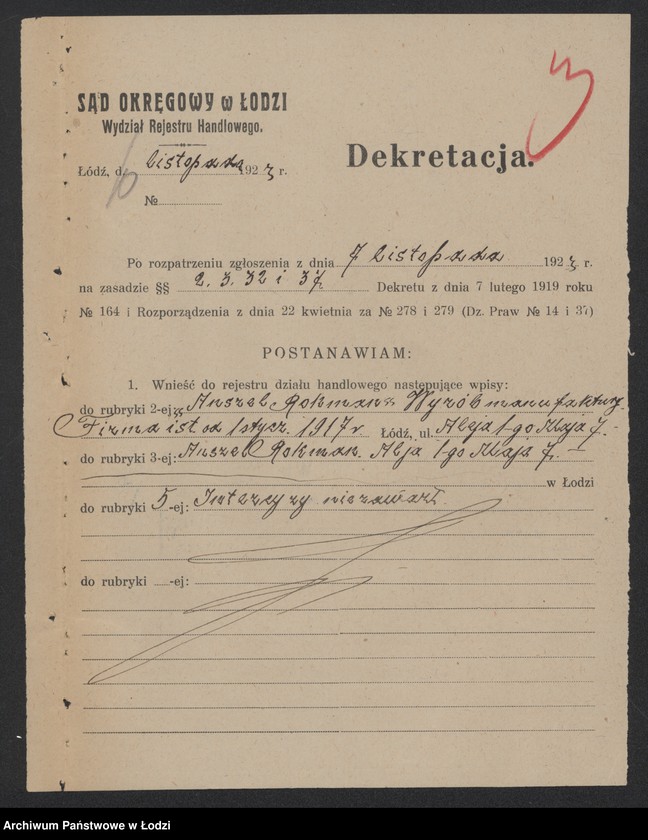 3
SĄD OKRĘGOWY w ŁODZI
Wydział Rejestru Handlowego.
Dekretacja.
Łódź, d. 6 listopada 1923 r.
№
Po rozpatrzeniu zgłoszenia z dnia 7 listopada 1923 r.
na zasadzie §§ 2. 3. 32 i 37 Dekretu z dnia 7 lutego 1919 roku
№ 164 i Rozporządzenia z dnia 22 kwietnia za № 278 i 279 (Dz. Praw № 14 i 37)
POSTANAWIAM:
1. Wnieść do rejestru działu handlowego następujące wpisy:
do rubryki 2-ej: „Anszel Rokman" Wyrób manufaktury.
Firma ist. od 1 stycz. 1917 r. Łódź, ul. Aleja 1-go Maja 7.
do rubryki 3-ej: Anszel Rokman. Alja 1-go Maja 7.
w Łodzi
do rubryki 5-ej: Intercyzy niezawarł.
do rubryki -ej:
Archiwum Państwowe w Łodzi